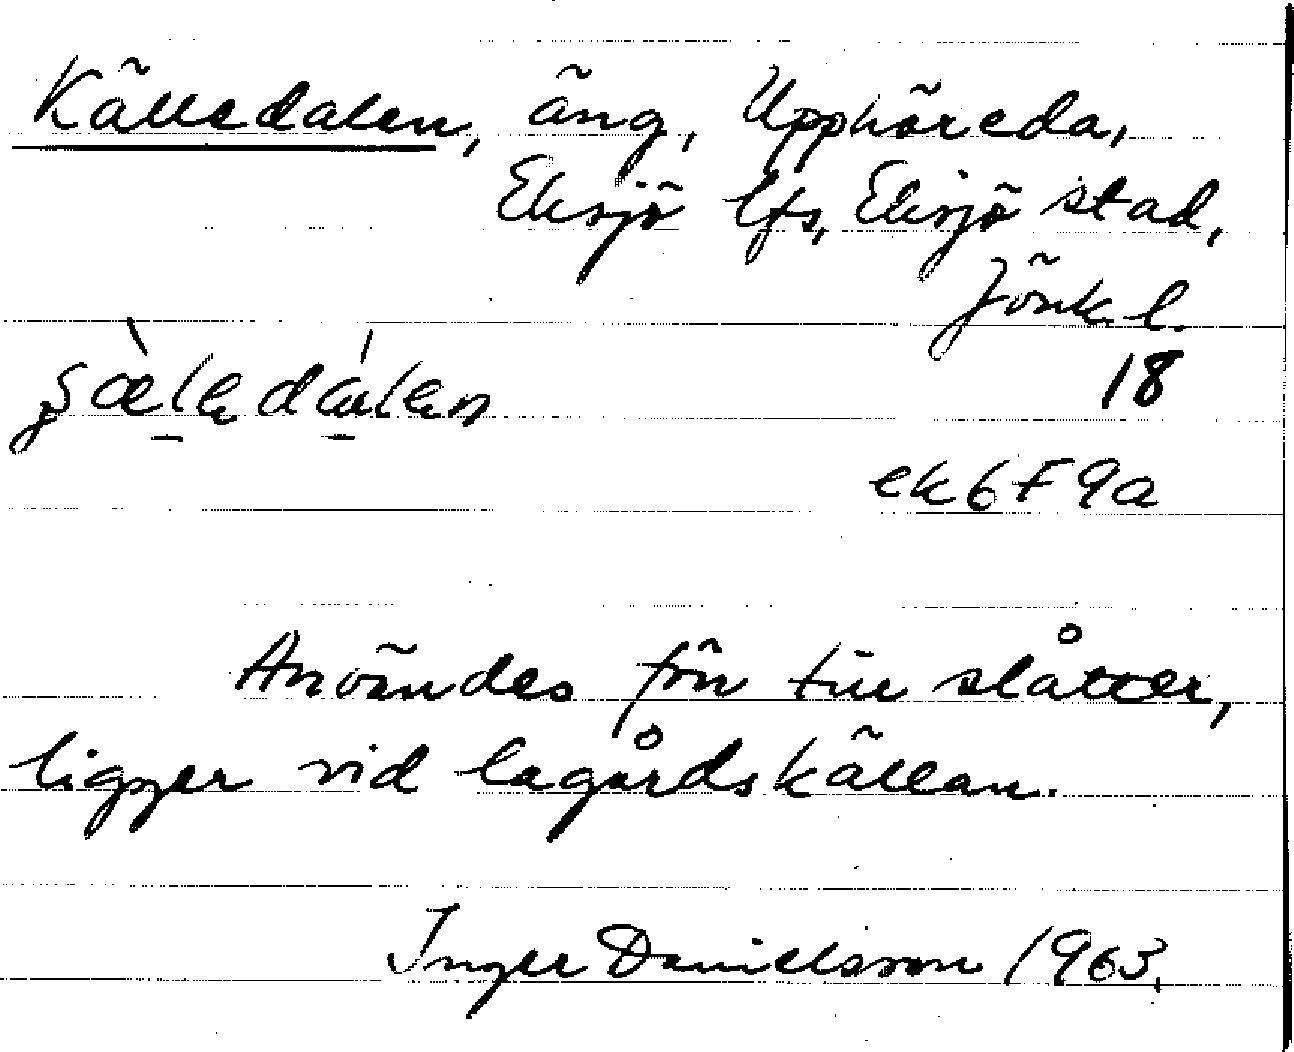 Källedalen, äng, Upphöreda,
Eksjö lfs, Eksjö stad,
Jönk. l.
18
ek 6 F 9a
Användes förr till slåtter,
ligger vid lagårdskällan.
Inger Danielsson 1963.